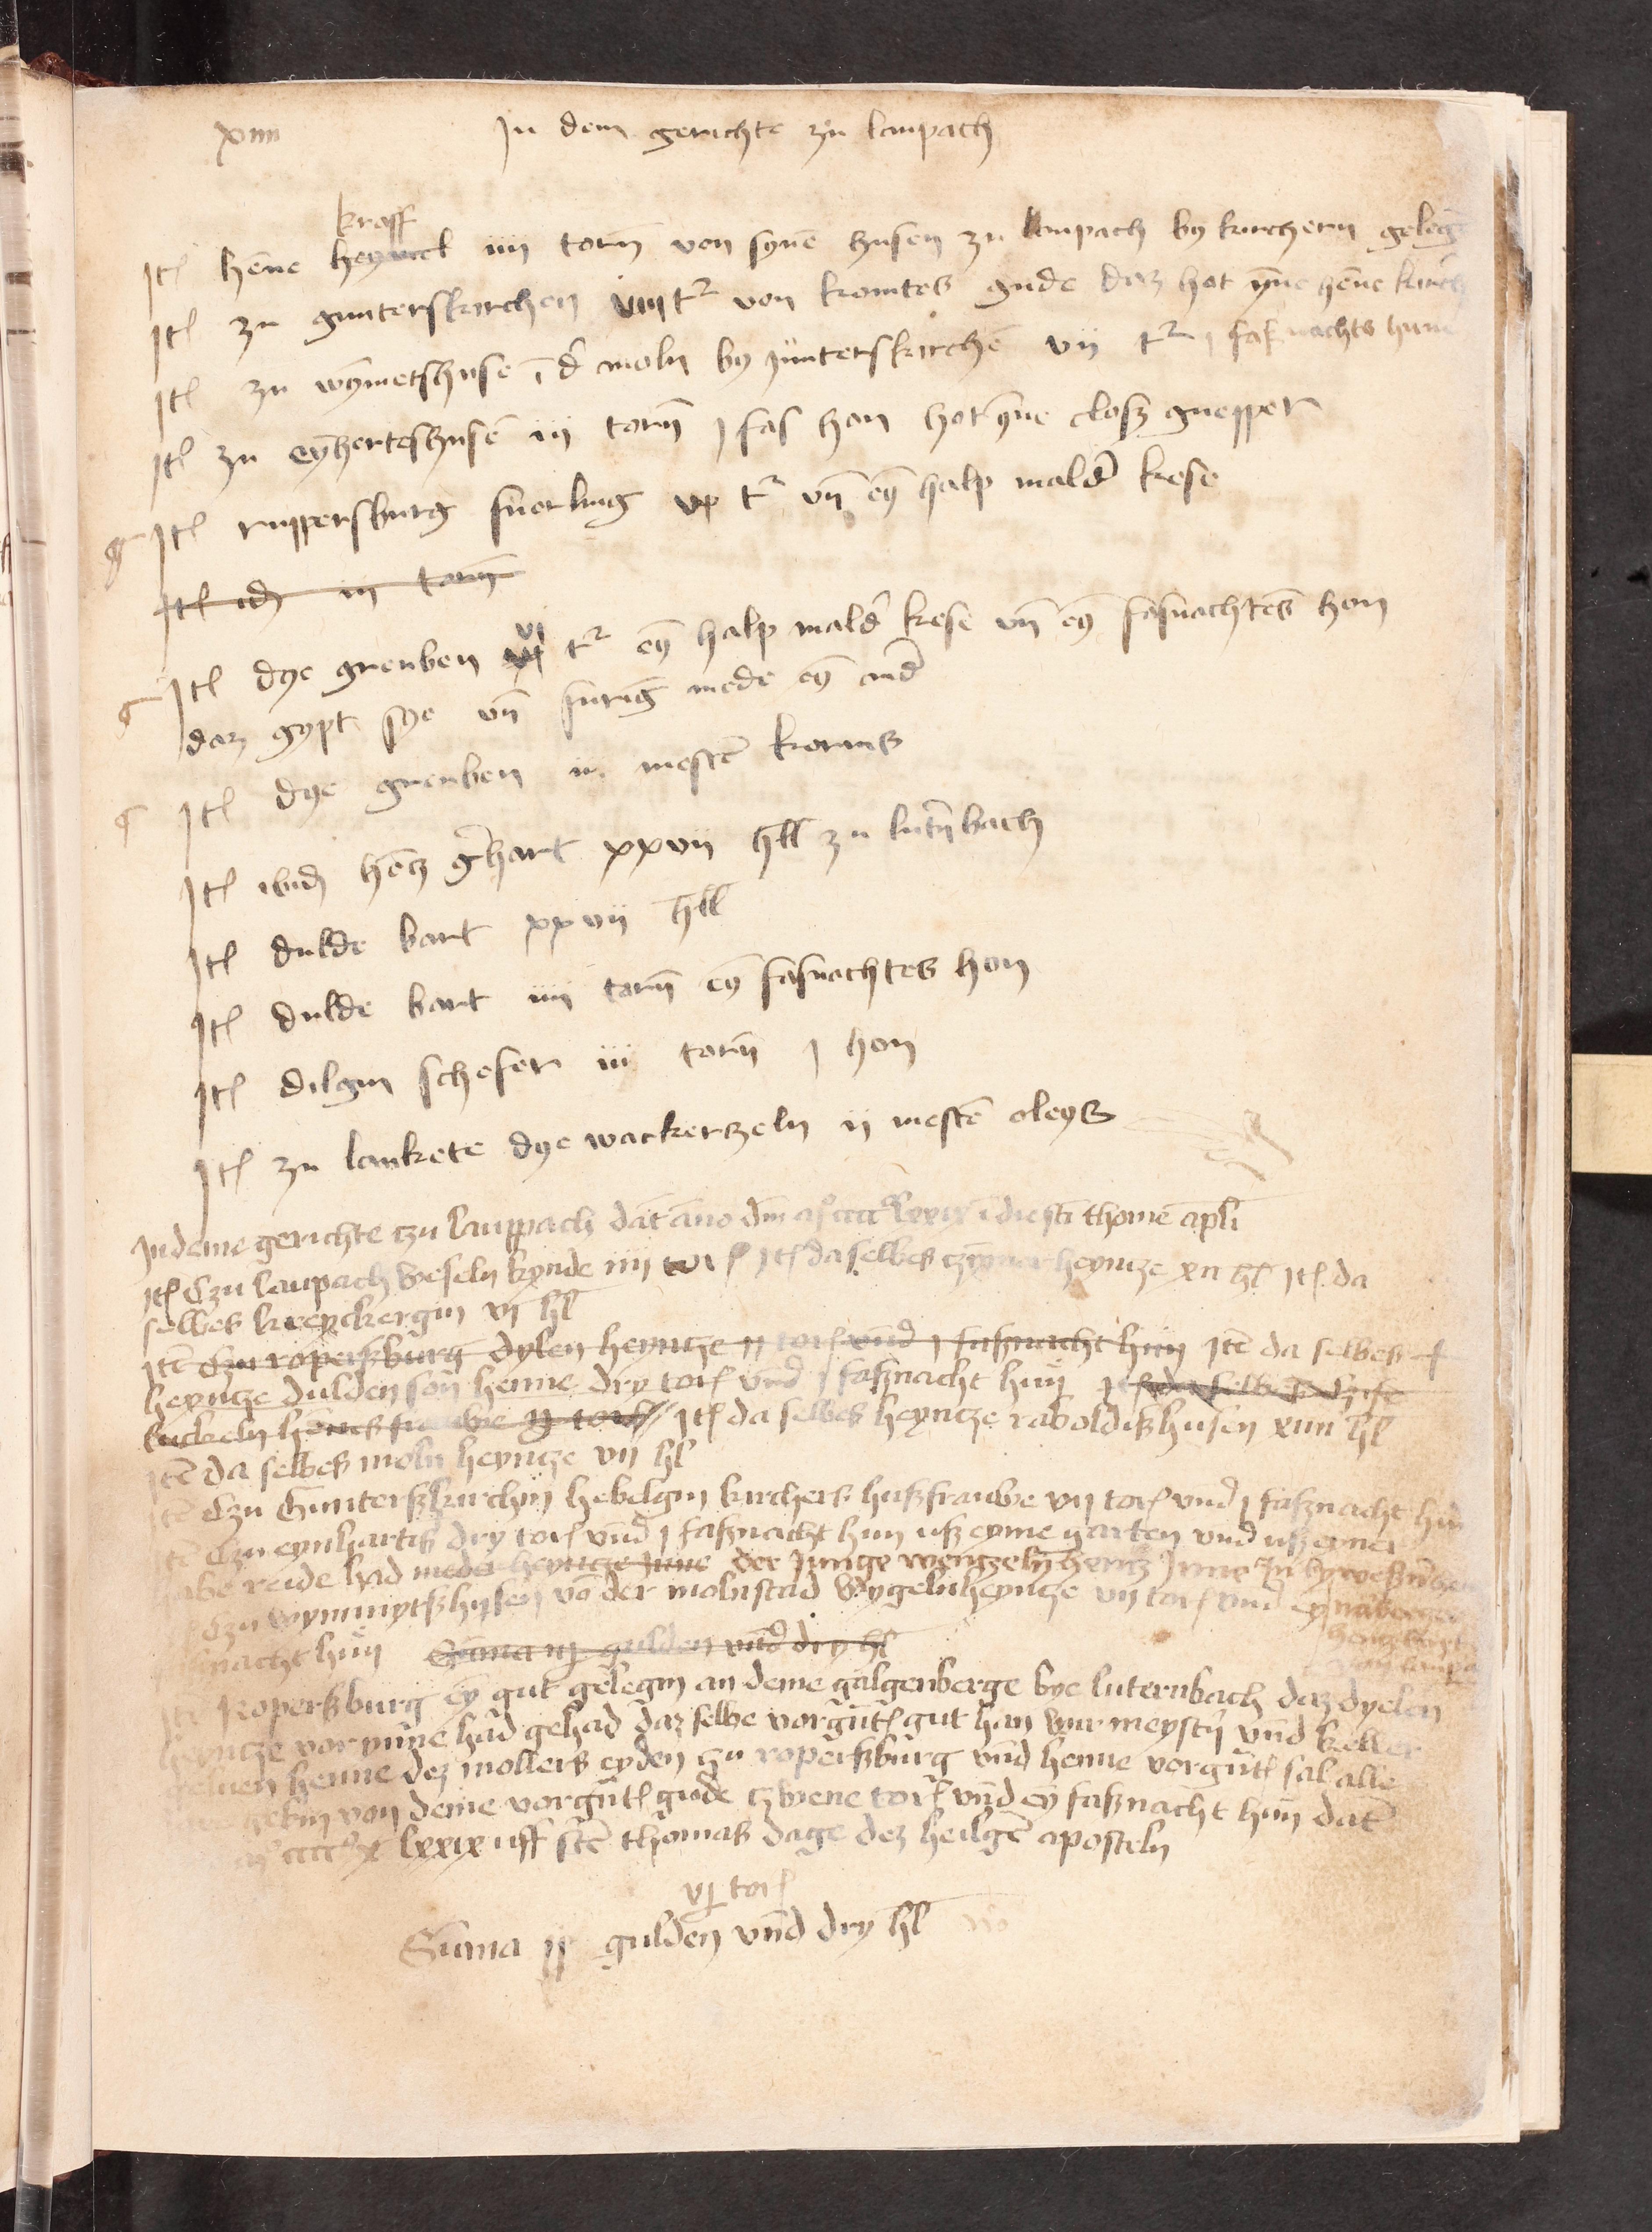 xiiii In dem gerichte zu laupach
kraff
Itē hēne heyncl iiii torn von syne husen zu laupach by kirchern gelegē
Itē zu gunterskirchen viii tz von kontes gude daz hot yne hēne kirch
Itē zu wymetshuse ī d' moln by guntterskirchē vii tz i fasznachts hune
Itē zu eynhertēshusē iii torn i fas hon hot yne closz gnepper
Itē ruppersburg sûerling vi tz vn ey halp mald' kese
Itē id iii torn
Itē dye greuben vi tz ey halp mald' kese vn ey fasnachtes hon
daz gypt sye vn surīg mede ey and'
Itē dye greuben ii mestē korns
Itē ibid hēcz g'hart xxvii hll zu lut'nbach
Itē dulde bart xxvii hll
Itē dulde bart iiii torn ey fasnachtes hon
Itē dilgin schefer iii torn i hon
Itē zu lankete dye wackerzeln ii mestē oleys
In deme gerichte czu lauppach dat āno dm mº cccc lxxix ī die sti thome apli
Itē Czu laupach weseln kynde iiii tor Itē da selbes heyntze xii hl Itē da
selbes kreyckergin vi hl
Itē Czu roperszburg dylen heyntze ii tor vnd i faßnacht hun Itē da selbes
heyntze dulden son henne dry tor vnd i faßnacht hun Itē da selbes
luckeln hēnes frauwe ii tor Itē da selbes heyntze raboldißhusen xiiii hl
Itē da selbes moln heyntze vii hl
Itē Czu Gunterßkirchin hebelgin kirchers hußfrauwe vii tor vnd i faßnacht hun
Itē Czu eynhartß dry tor vnd i faßnacht hun uß eyme garten vnd uß eyner
reide had meder heyntze Inne der Junge wentzeln hentz Inne
Czu wymmytßhusen vō der molnstad Wygeln heyntze vii tor vnd ey
nacht hun Suma iii gulden vnd dry hl
Itē Roperßburg ey gut gelegin an deme galgenberge bye luternbach daz dyelen
heyntze vor ynne had gehad daz selbe vorgnt gut han wir meystr vnd keller
geluen henne dez mollers eyden zu roperßburg vnd henne vorgnt sal alle
gebin von deme vorgnt gude czwene tor vnd ey faßnacht hun dat
mº cccc lxxix uff stē thomas dage dez heilgē aposteln
vi tor
Suma ii gulden vnd dry hl